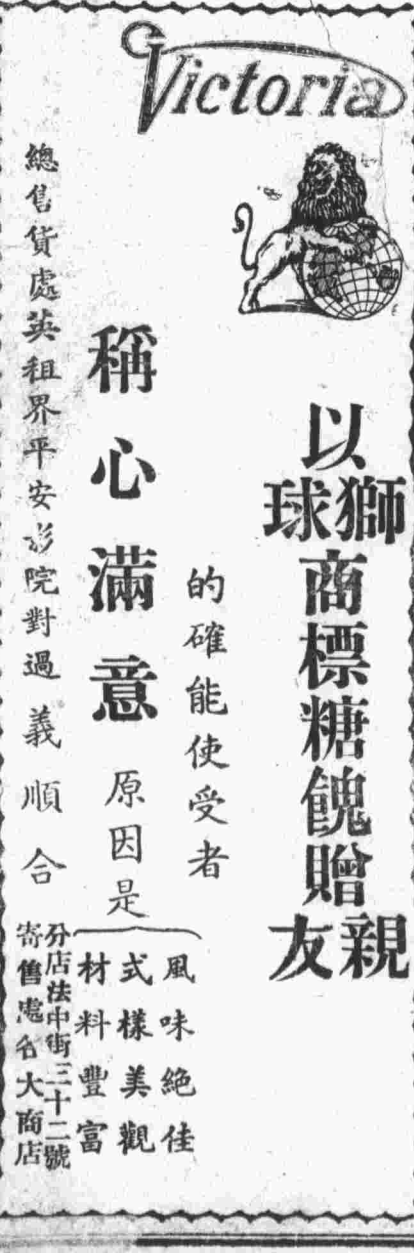 Victoria
以獅球商標糖餽贈親友
的確能使受者
稱心滿意
原因是
風味絕佳
式樣美觀
材料豐富
總售貨處英租界平安影院對過 義順合
分店法中街三十二號
寄售處各大商店